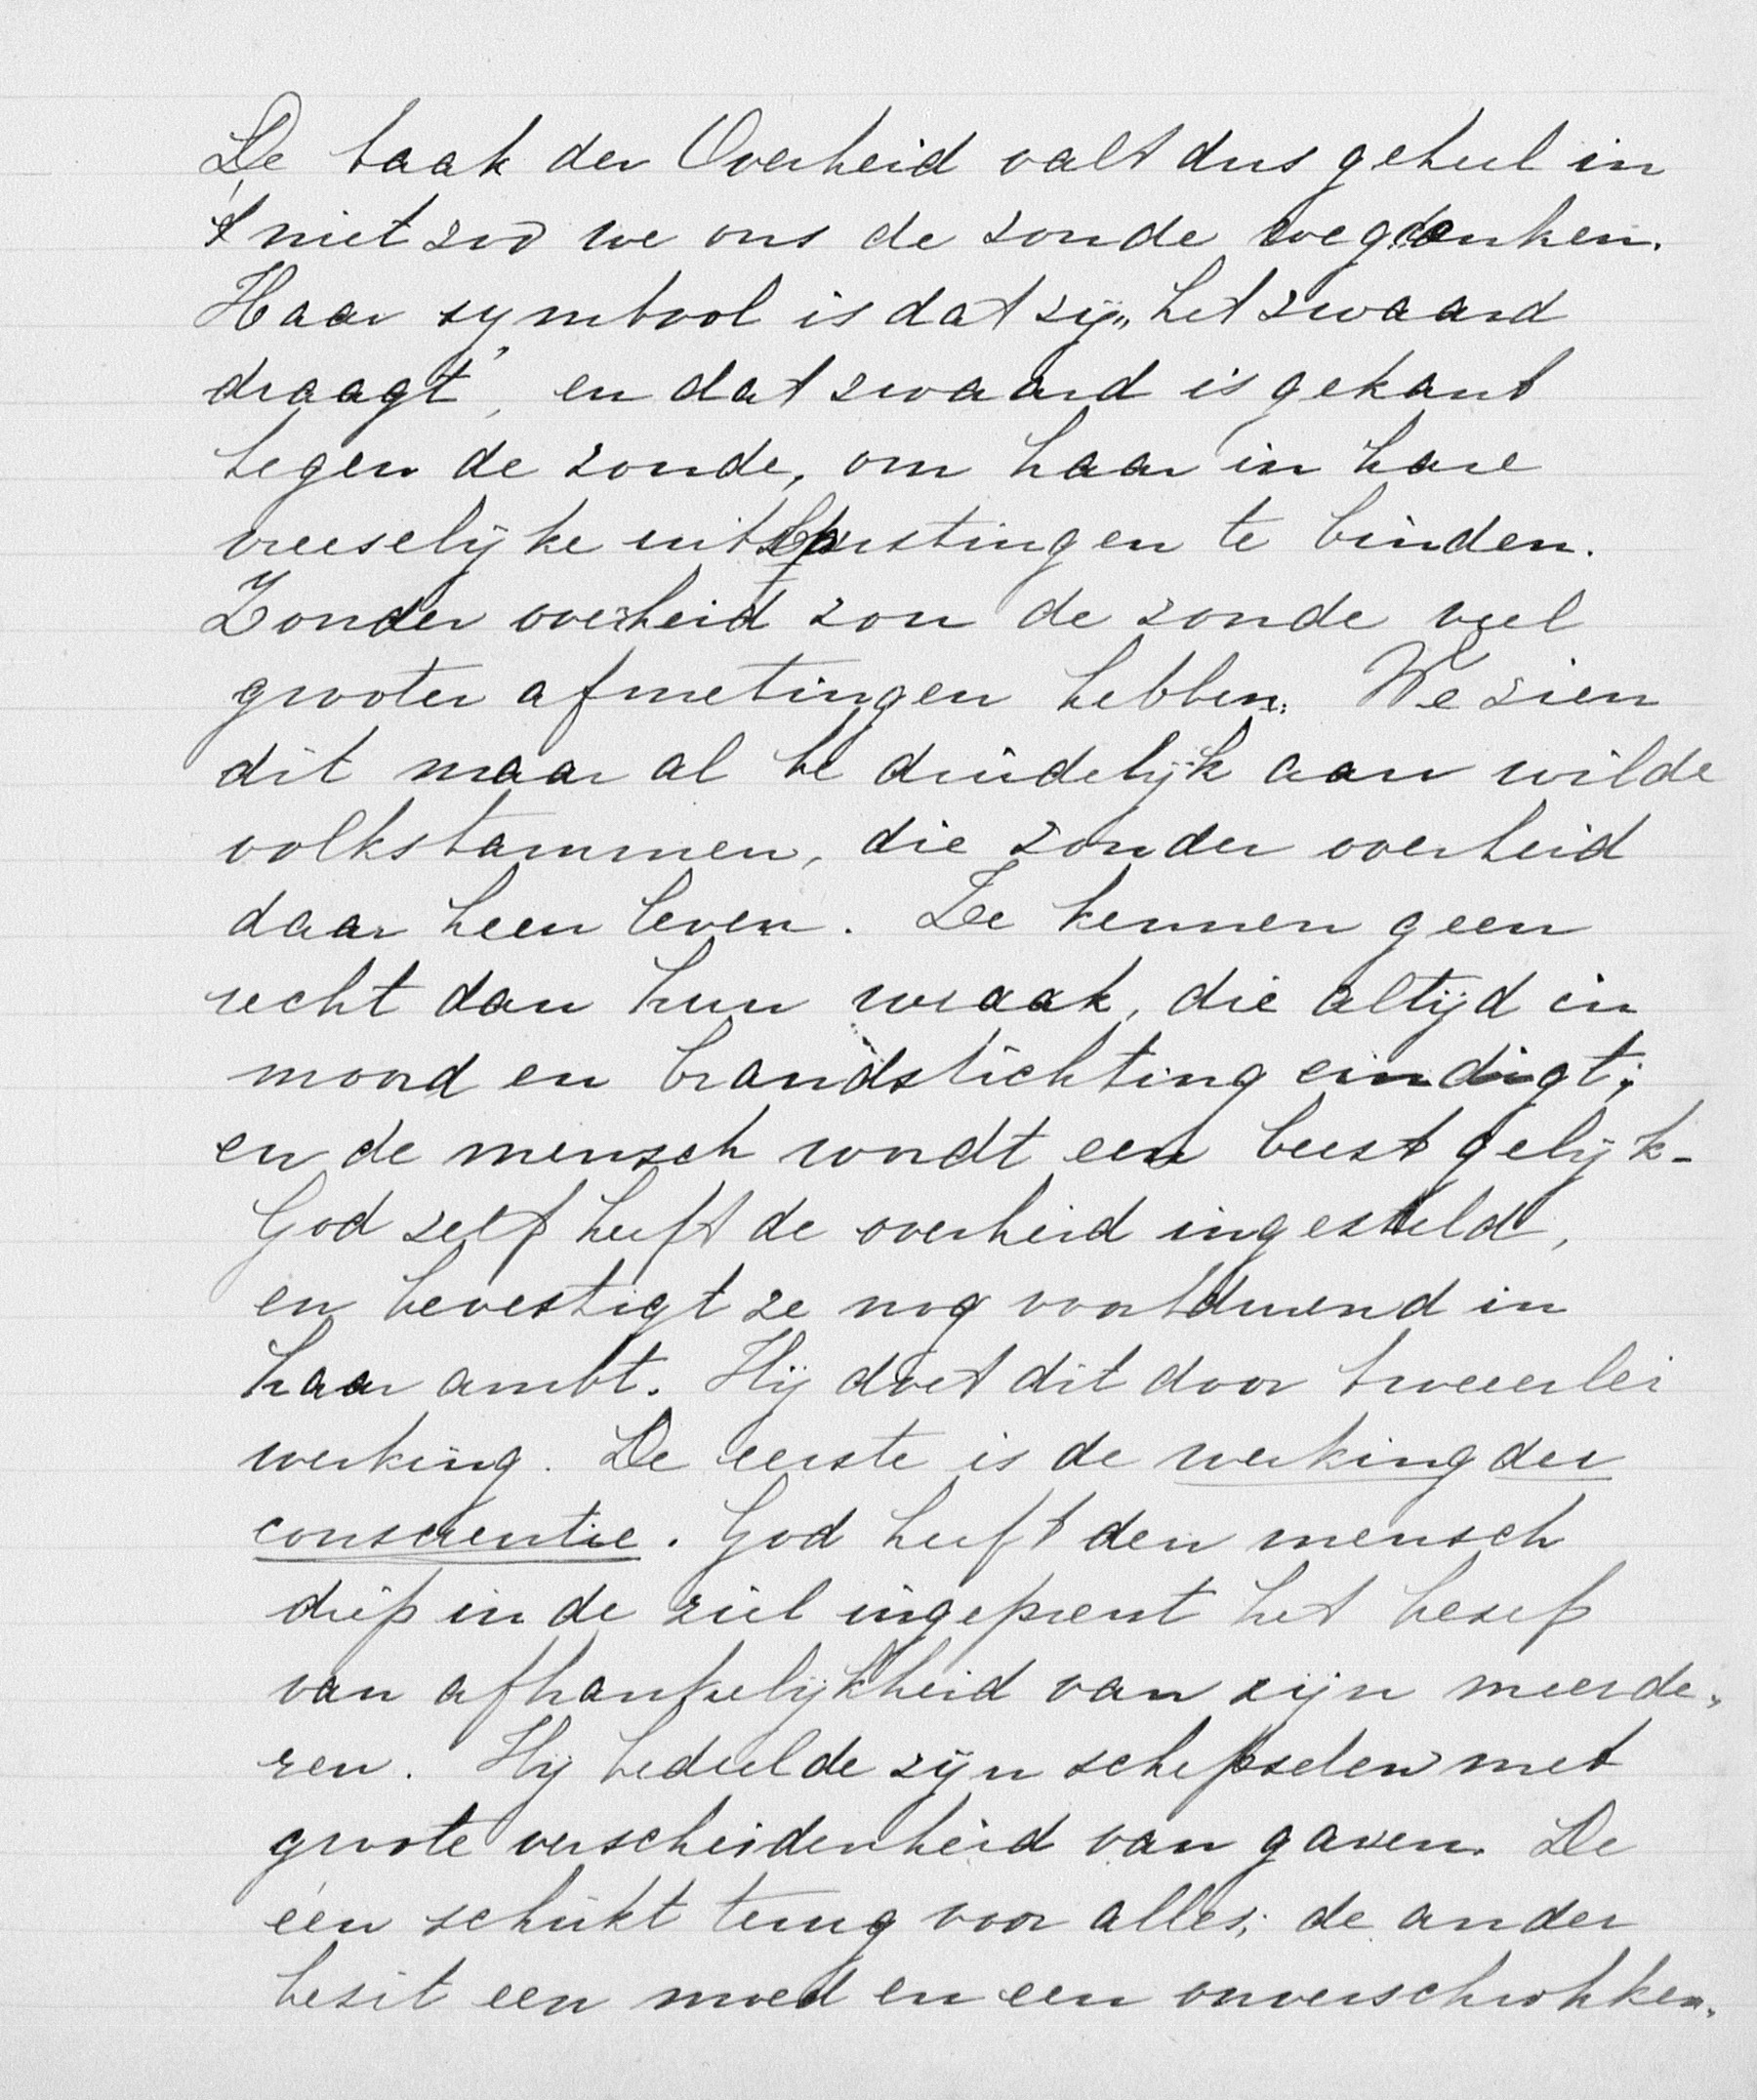 De taak der Overheid valt dus geheel in
't niet zoo we ons de zonde wegdenken.
Haar symbool is dat zij „het zwaard
draagt”, en dat zwaard is gekant
tegen de zonde, om haar in hare
vreeselijke uitspattingen te binden.
Zonder overheid zou de zonde veel
grooter afmetingen hebben. We zien
dit maar al te duidelijk aan wilde
volkstammen, die zonder overheid
daar heen leven. Ze kennen geen
recht dan hun wraak, die altijd in
moord en brandstichting eindigt;
en de mensch wordt een beest gelijk.
God zelf heeft de overheid ingesteld,
en bevestigt ze nog voortdurend in
haar ambt. Hij doet dit door tweeerlei
werking. De eerste is de werking der
conscientie. God heeft den mensch
diep in de ziel ingeprent het besef
van afhankelijkheid van zijn meerde-
ren. Hij bedeelde zijn schepselen met
groote verscheidenheid van gaven. De
één schrikt terug voor alles; de ander
bezit een moed en een onverschrokken-